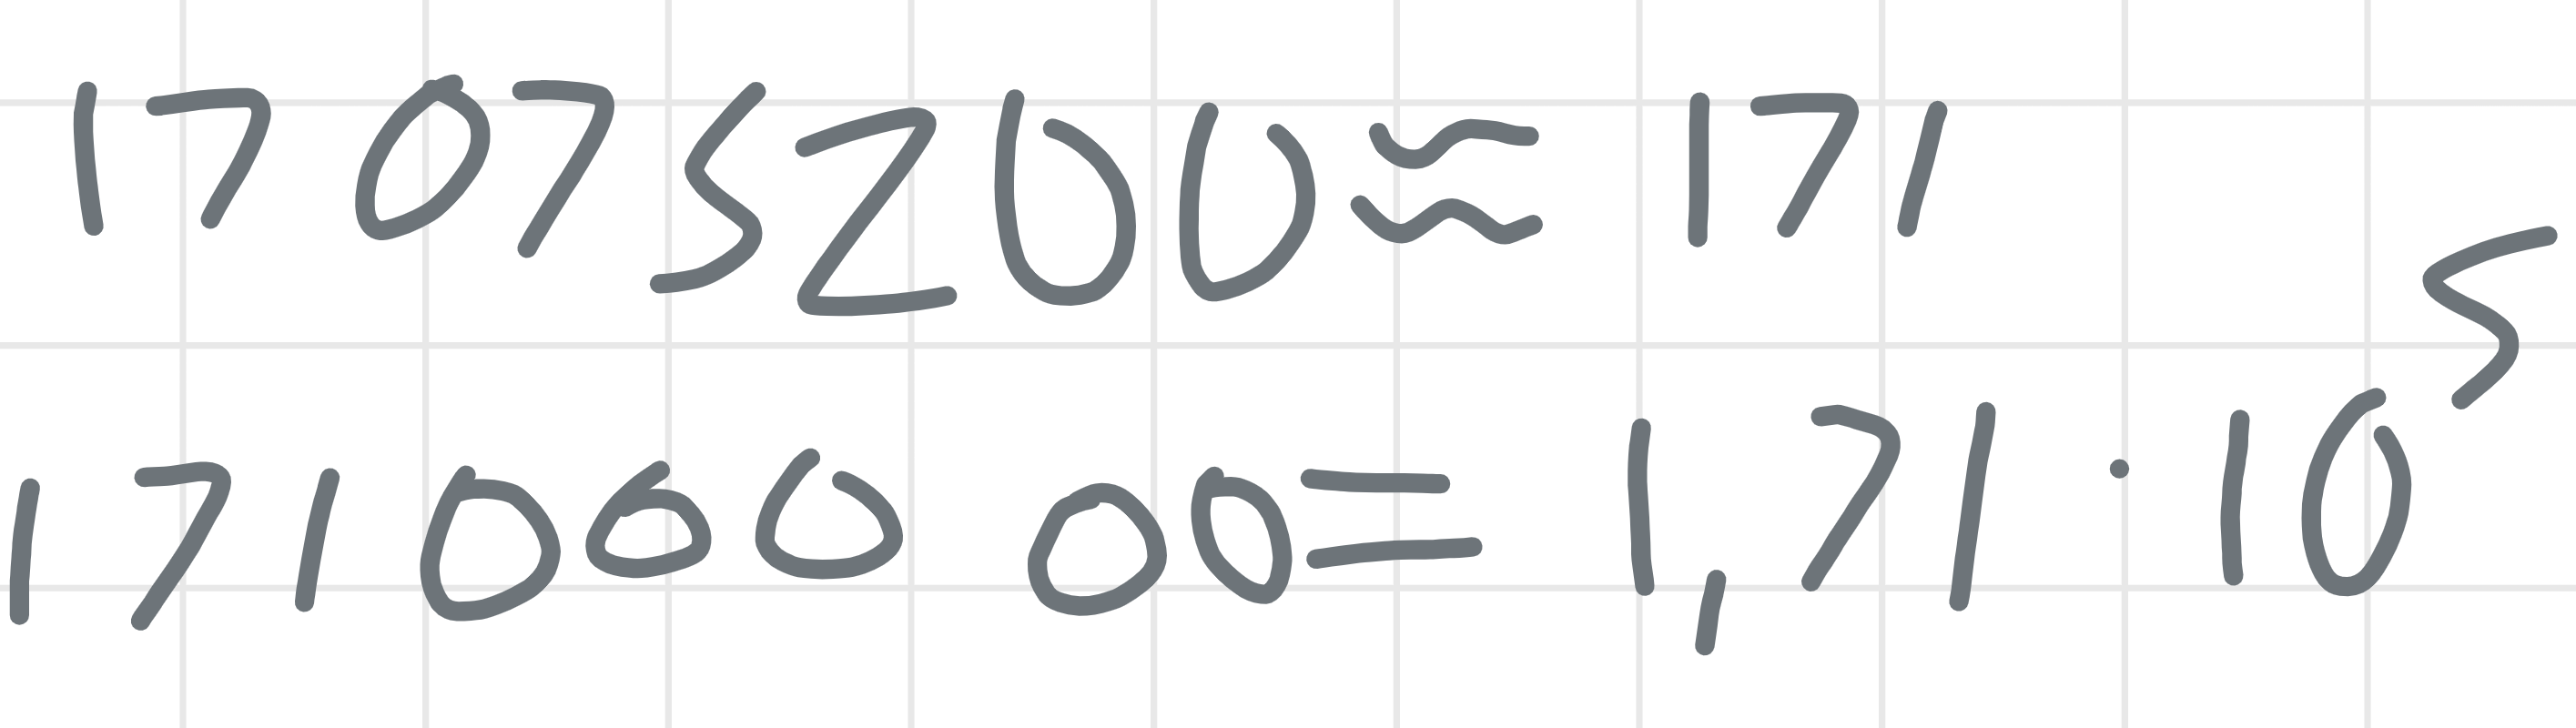 17 075200 ≈ 171
171000 00 = 1,71 · 10⁵